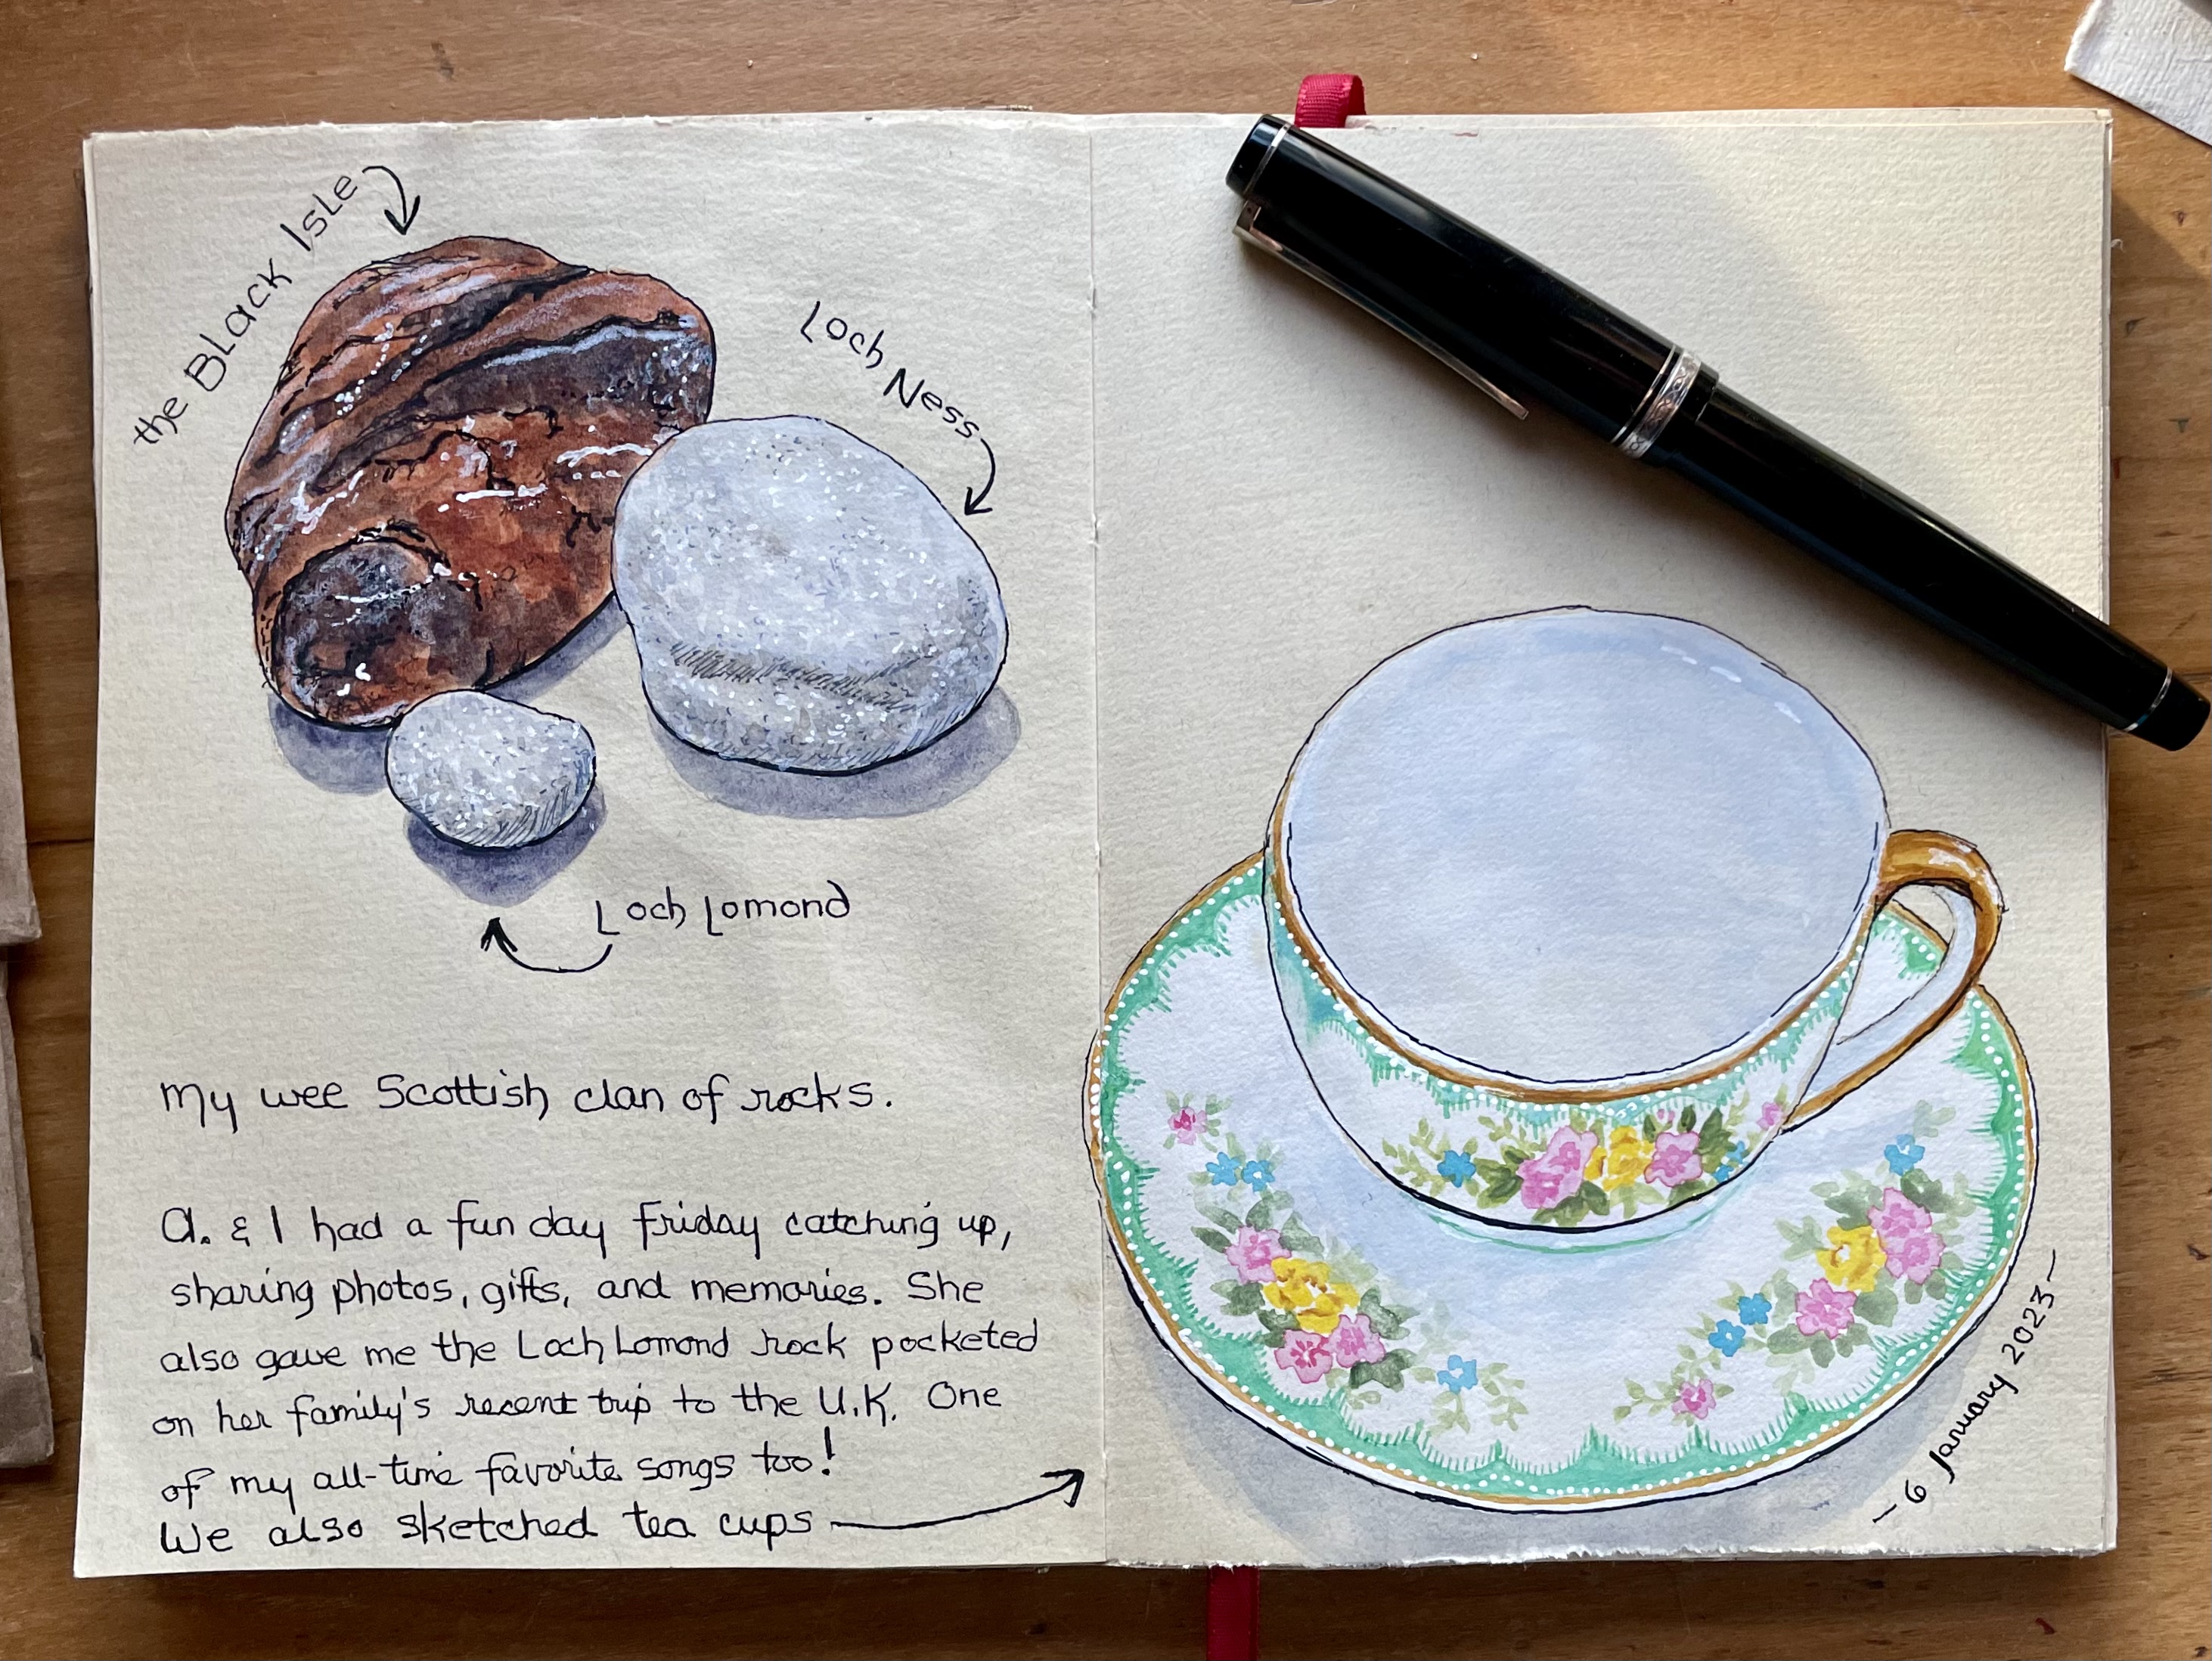 the Black Isle
Loch Ness
Loch Lomond
My wee Scottish clan of rocks.
A. & I had a fun day Friday catching up,
sharing photos, gifts, and memories. She
also gave me the Loch Lomond rock pocketed
on her family's recent trip to the U.K. One
of my all-time favorite songs too!
We also sketched tea cups
– 6 January 2023 –